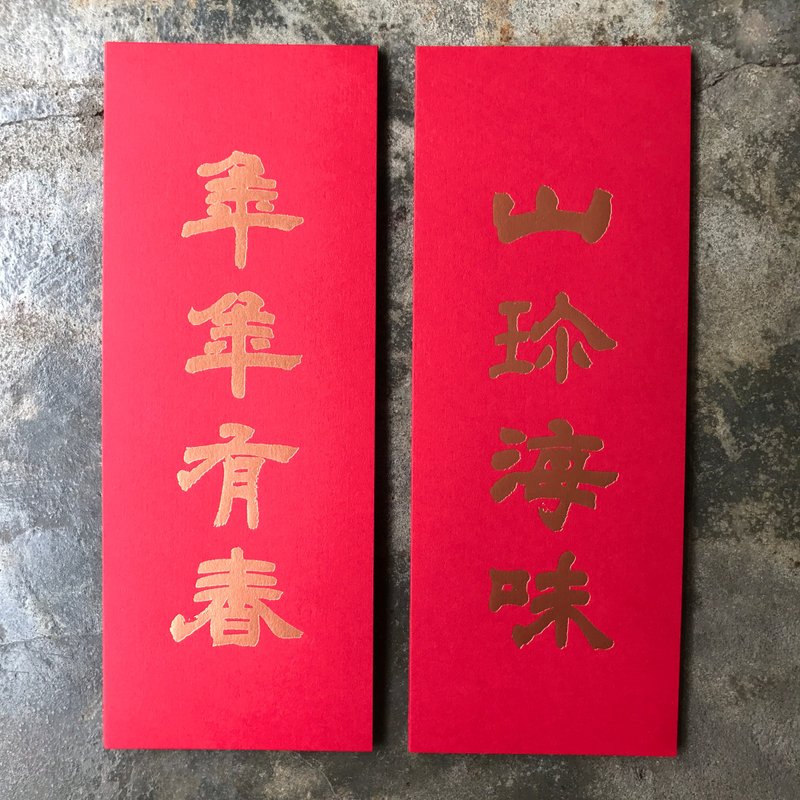 年年有春
山珍海味